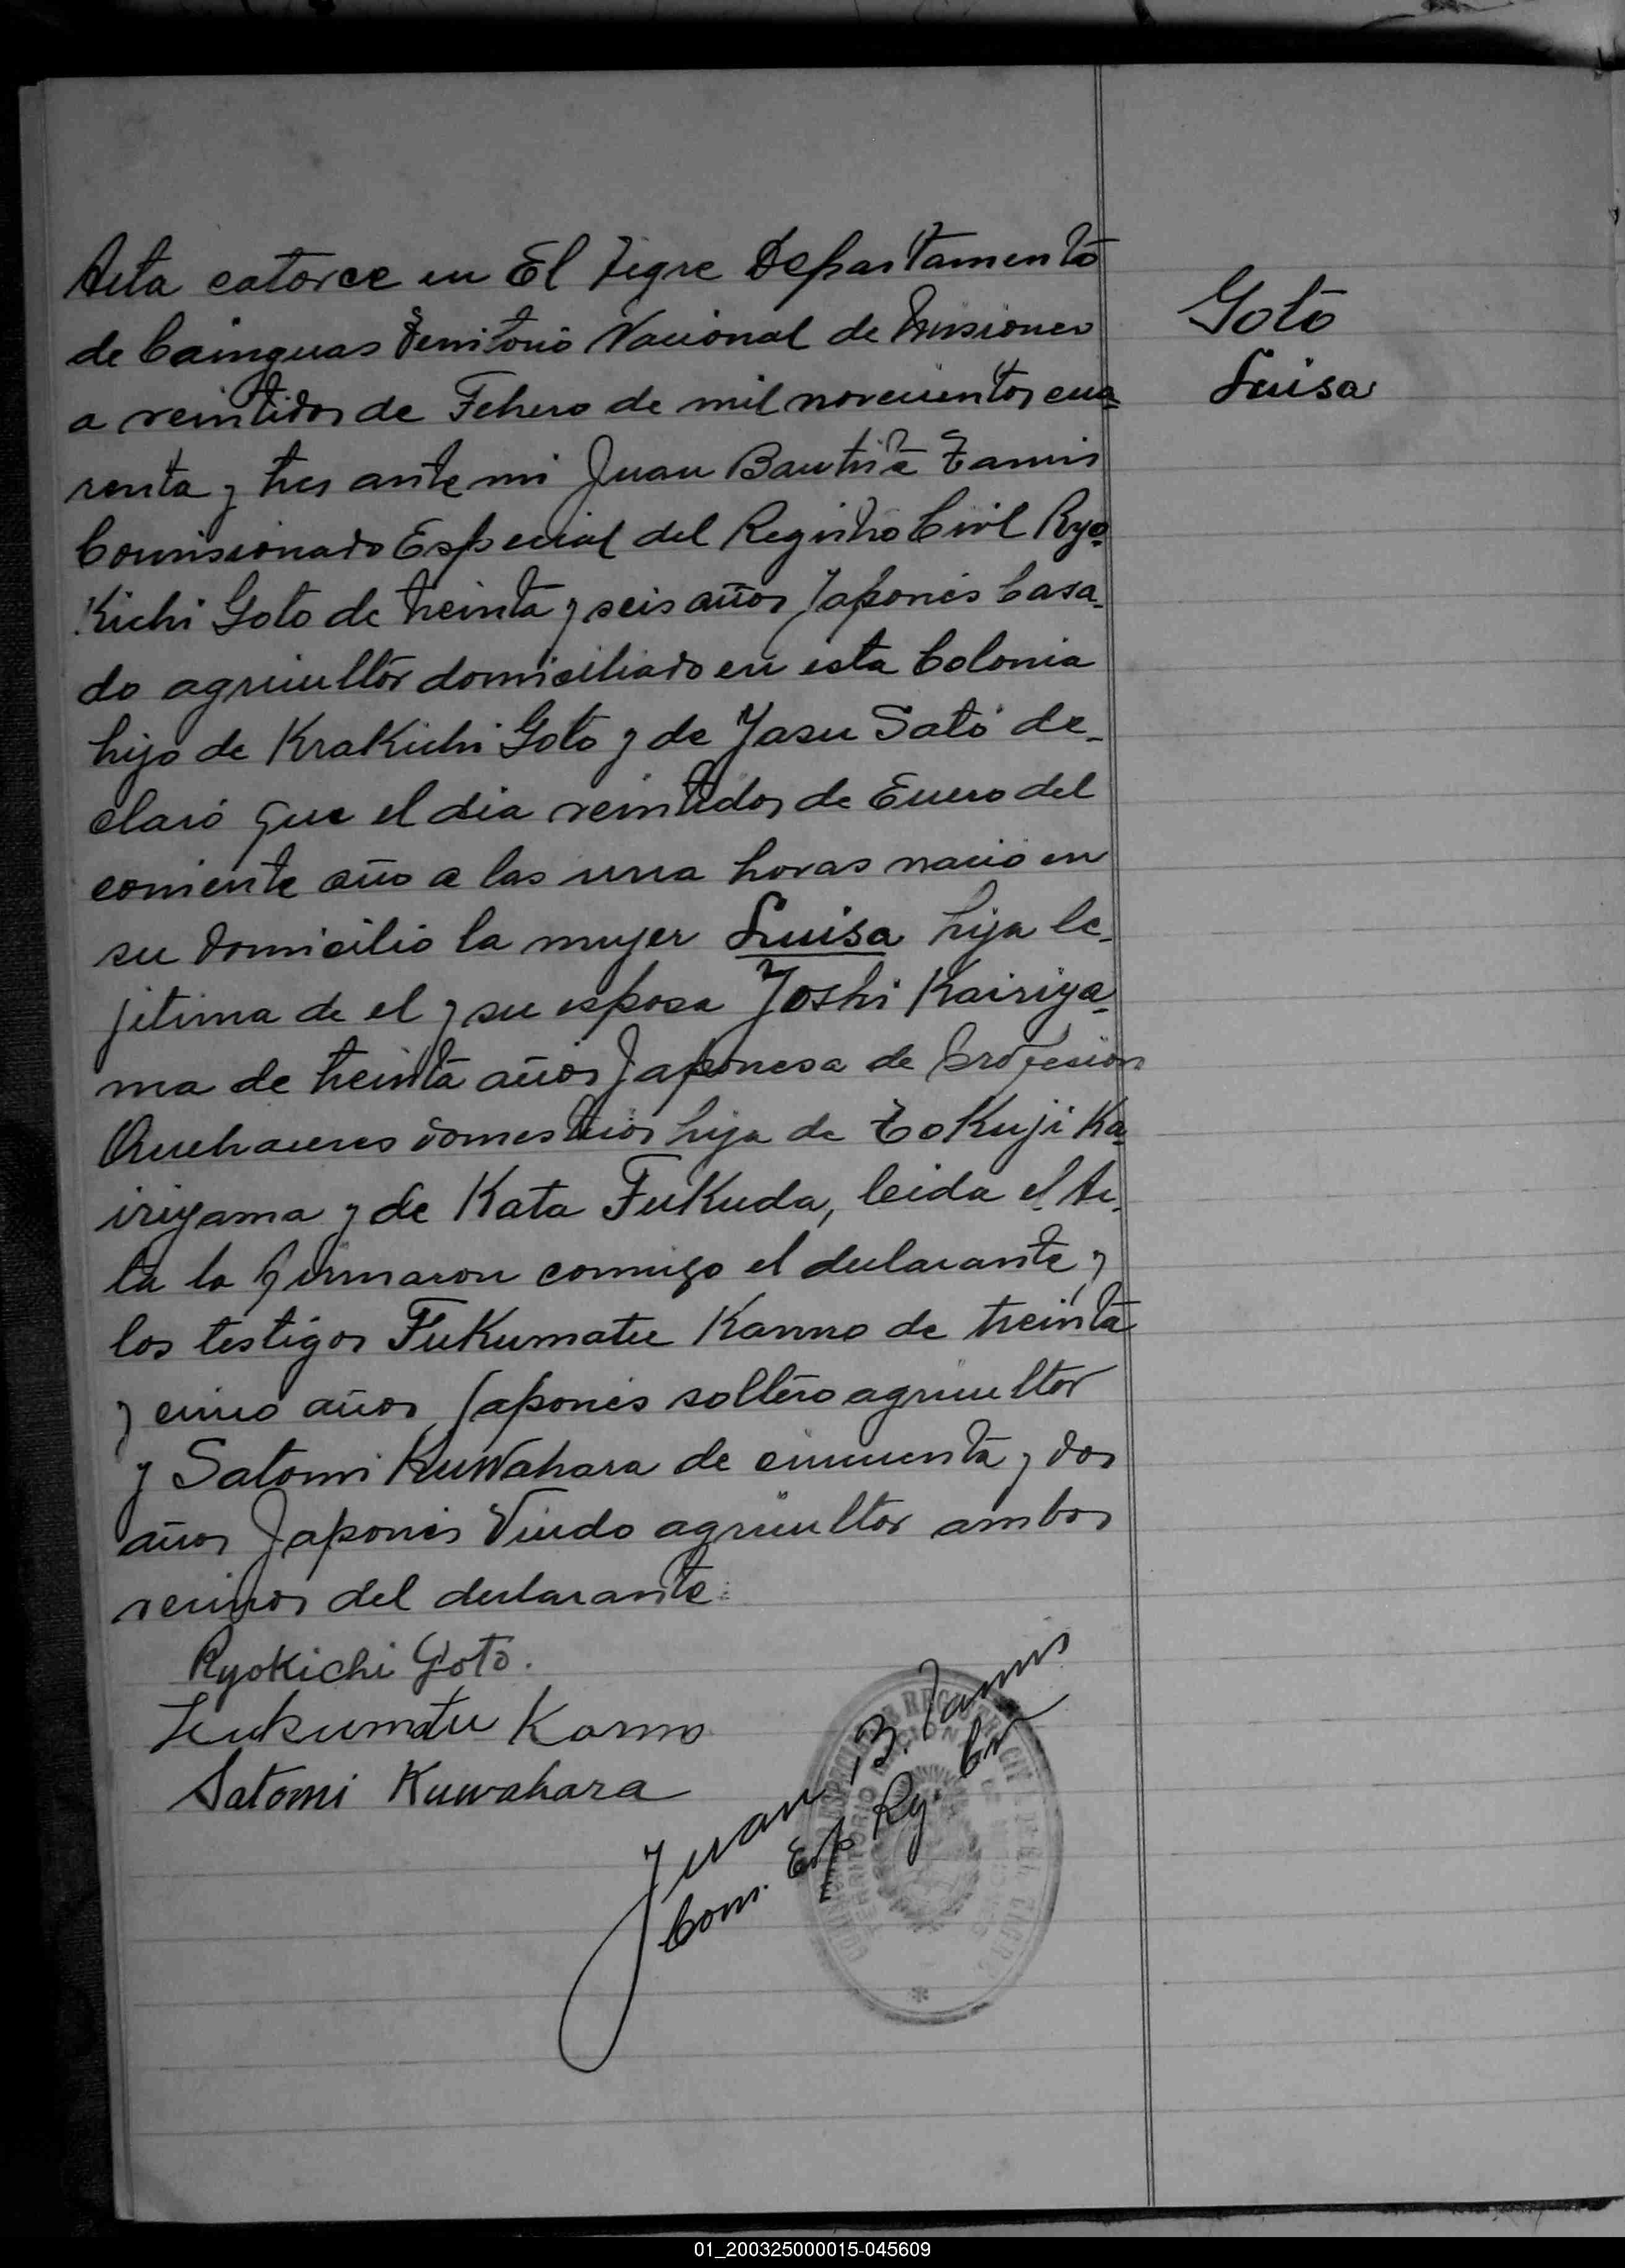 Acta catorce en El Tigre Departamento
de Cainguas Territorio Nacional de Misiones
a veintidos de Febrero de mil novecientos cua-
renta y tres ante mi Juan Bautista Tannis
Comisionado Especial del Registro Civil Ryo-
Kichi Goto de treinta y seis años Japonés Casa-
do agricultor domiciliado en esta Colonia
hijo de KraKichi Goto y de Yasu Sato de-
claró que el dia veintidos de Enero del
corriente año a las una horas nació en
su domicilio la mujer Luisa hija le-
jitima de el y su esposa Yoshi Kairiya-
ma de treinta años Japonesa de profesion
Quehaceres domesticos hija de ToKuji Ka-
iriyama y de Kata FuKuda, leida el Ac-
ta la firmaron conmigo el declarante y
los testigos FuKumatu Kanno de treinta
y cinco años Japonés soltero agricultor
y Satomi Kuwahara de cincuenta y dos
años Japonés Viudo agricultor ambos
vecinos del declarante
Ryokichi Goto.
Fukumatu Kanno
Satomi Kuwahara
Juan B. Tannis
Com. Esp. Rg. Cv
Goto
Luisa
TERRITORIO NACIONAL DE MISIONES
01_200325000015-045609